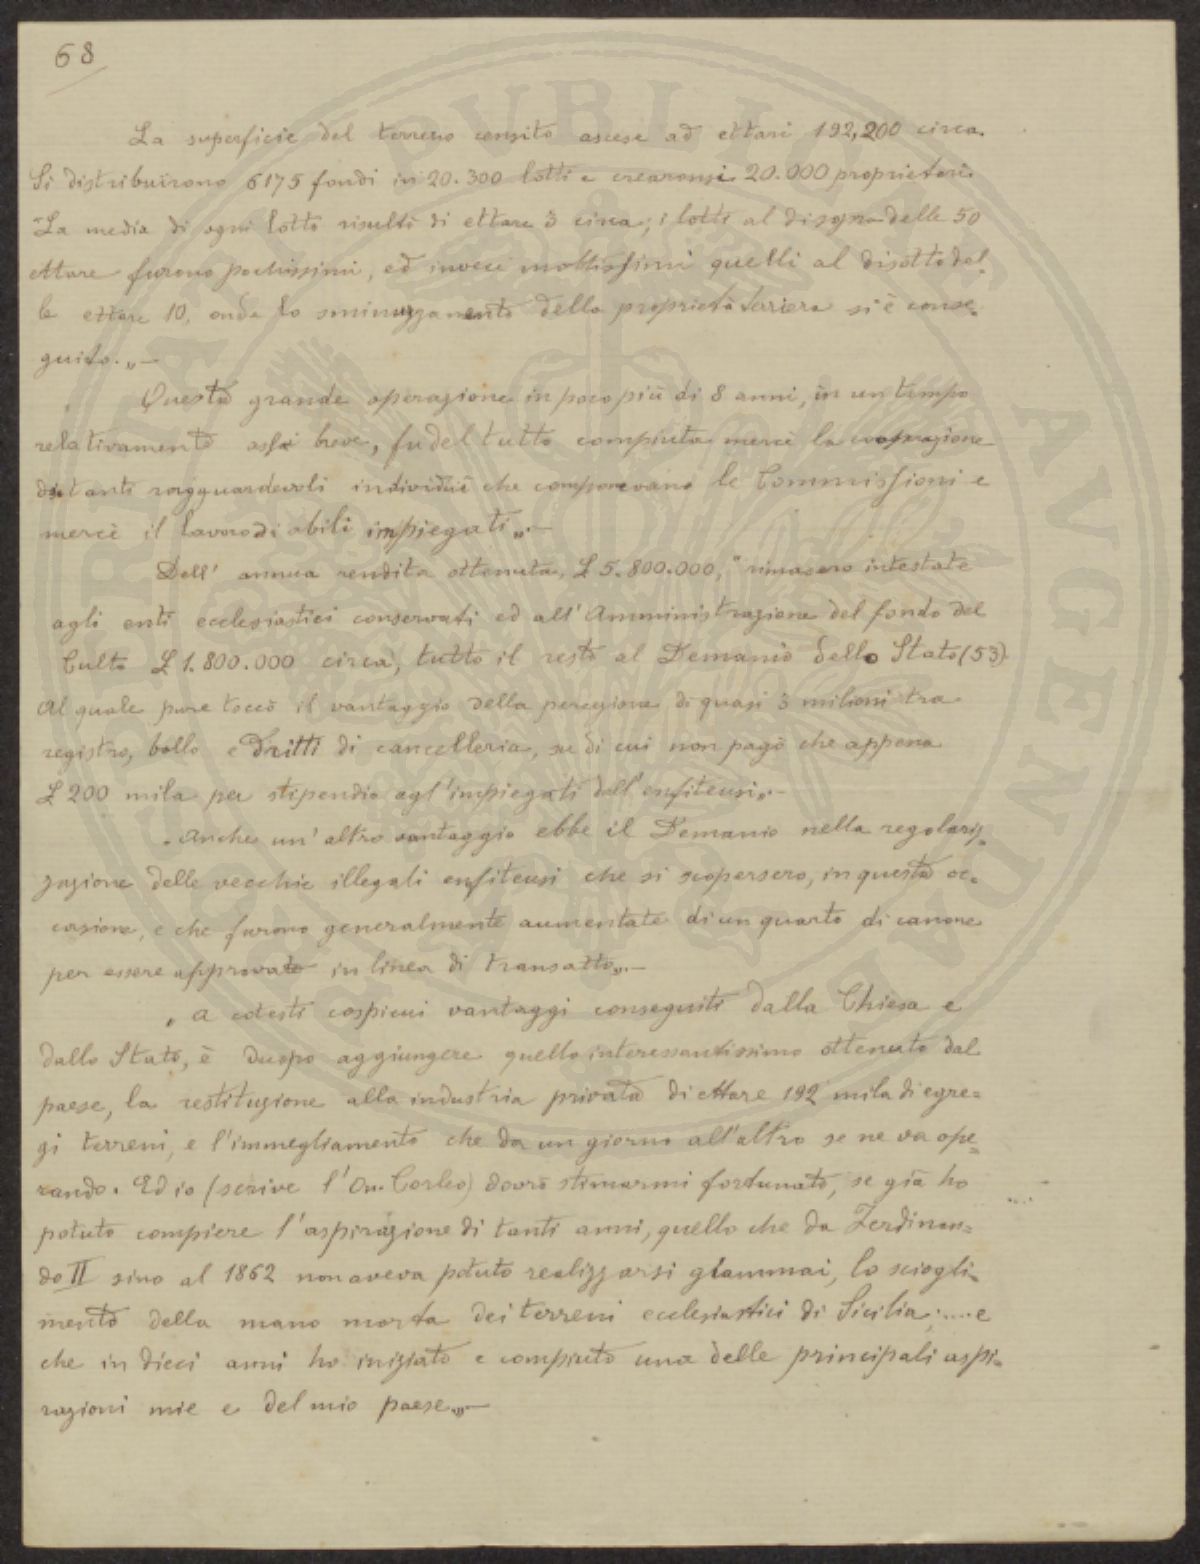 68
La superficie del terreno censito ascese ad ettari 192,200 circa.
Si distribuirono 6175 fondi in 20.300 lotti e crearonsi 20.000 proprietari.
"La media di ogni lotto risultò di ettare 3 circa; i lotti al disopra delle 50
ettare furono pochissimi, ed invece moltissimi quelli al disotto del-
le ettare 10, onde lo sminuzzamento della proprietà terriera si è conse-
guito.„—
Questa grande operazione in poco più di 8 anni, in un tempo
relativamente assai breve, fu del tutto compiuta mercè la cooperazione
di tanti ragguardevoli individui che componevano le Commissioni e
mercè il lavoro di abili impiegati„.—
Dell' annua rendita ottenuta, £ 5.800.000, "rimasero intestate
agli enti ecclesiastici conservati ed all' Amministrazione del fondo del
Culto £ 1.800.000 circa, tutto il resto al Demanio dello Stato (53)
Al quale pure toccò il vantaggio della percezione di quasi 3 milioni tra
registro, bollo e dritti di cancelleria, su di cui non pagò che appena
£ 200 mila per stipendio agl'impiegati dell'enfiteusi„.—
"Anche un'altro vantaggio ebbe il Demanio nella regolariz-
zazione delle vecchie illegali enfiteusi che si scopersero, in questa oc-
casione, e che furono generalmente aumentate di un quarto di canone
per essere approvate in linea di transatto„.—
"A cotesti cospicui vantaggi conseguiti dalla Chiesa e
dallo Stato, è duopo aggiungere quello interessantissimo ottenuto dal
paese, la restituzione alla industria privata di ettare 192 mila di egre=
gi terreni, e l'immegliamento che da un giorno all'altro se ne va ope-
rando. Ed io (scrive l'On. Corleo) dovrò stimarmi fortunato, se già ho
potuto compiere l'aspirazione di tanti anni, quello che da Ferdinan=
do II sino al 1862 non aveva potuto realizzarsi giammai, lo sciogli-
mento della mano morta dei terreni ecclesiastici di Sicilia; .... e
che in dieci anni ho iniziato e compiuto una delle principali aspi-
razioni mie e del mio paese„.—